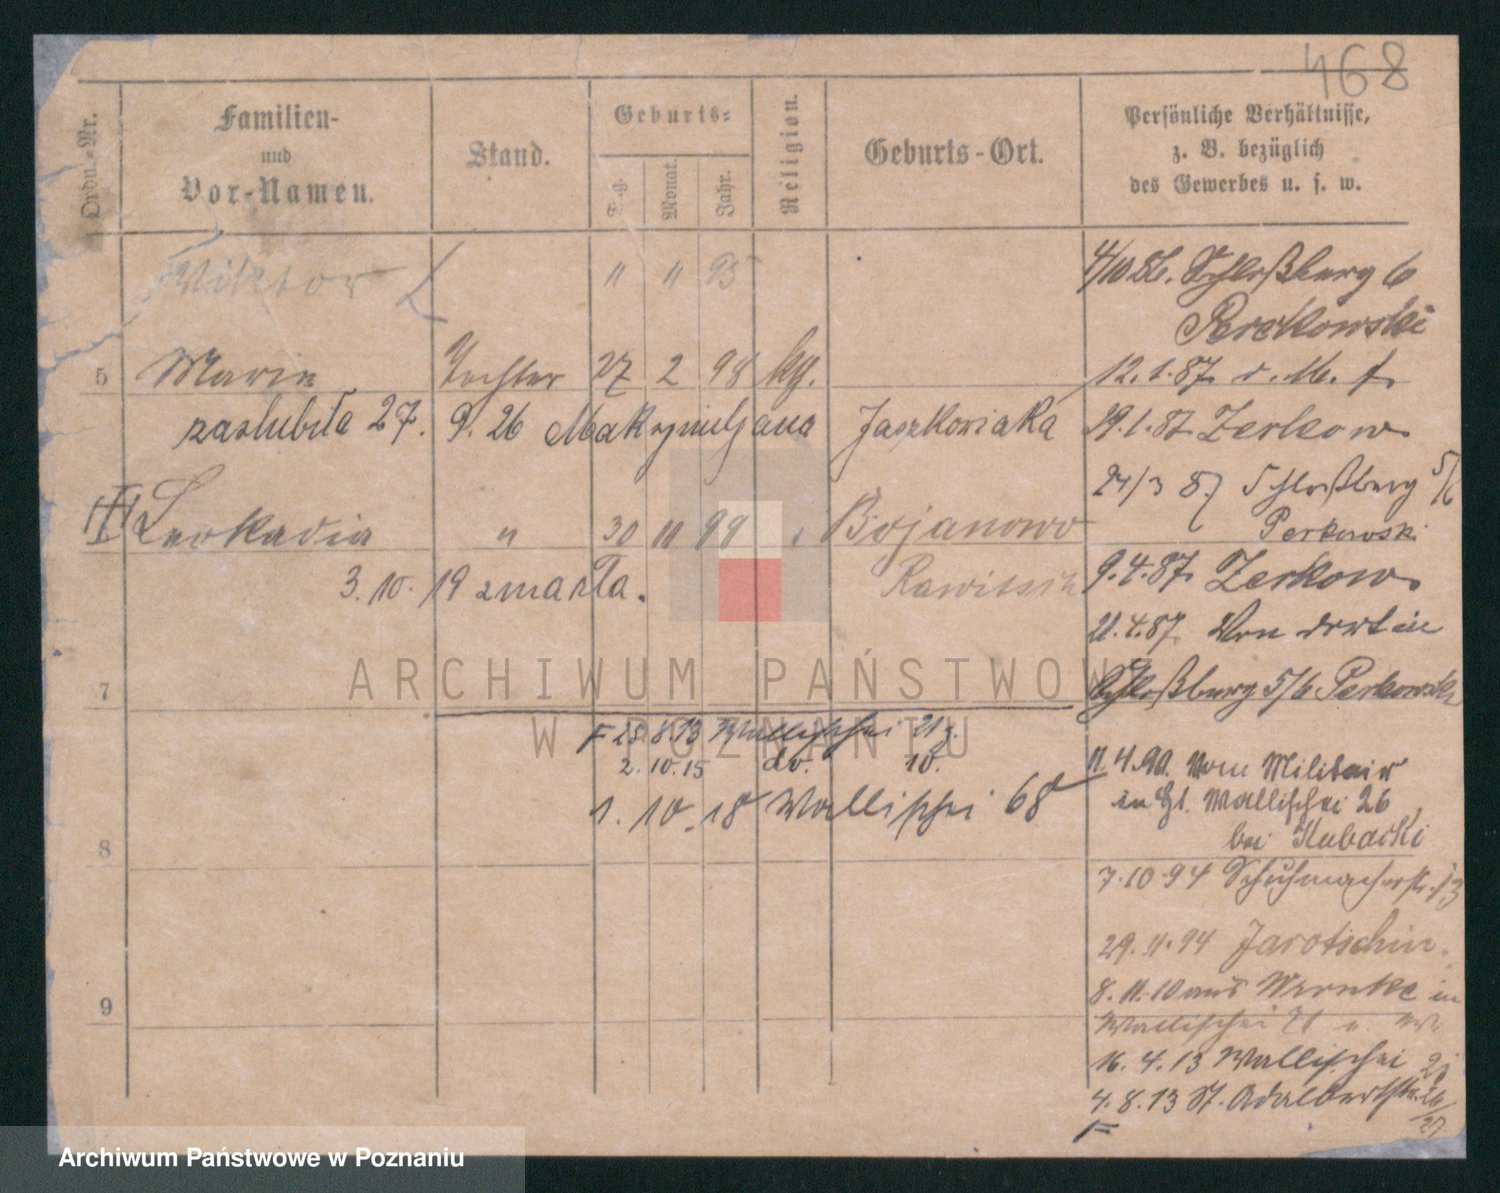 468
Ordn.-Nr.
Familien-
und
Vor-Namen.
Stand.
Geburts-
Tag.
Monat.
Jahr.
Religion.
Geburts-Ort.
Persönliche Verhältnisse,
z. B. bezüglich
des Gewerbes u. s. w.
Viktor " " 95
4/10 86. Schloßburg 6
Perkowski
5 Marie Tochter 27 2 98 kg.
12.1.87. v. M. f.
zaślubiła 27. 9. 26 Maksymiljana Jaszkowiaka
29.1.87 Zerkow
24/3 87 Schloßberg 5/6
Perkowski
Leokadia " 30 11 99 Bojanowo
3.10.19 zmarła. Rawitsch
9.4.87. Zerkow
21.4.87. Von dort in
7
Schloßburg 5/6 Perkowski
F 25.8.13 Wallischei 21
2.10.15 do. 10.
1.10.18 Wallischei 68
11.4.90. Vom Militair
in Wallischei 26
bei Kubacki
8
7.10.94 Schuhmacherstr. 13
29.11.94 Jarotschin.
9
8.11.10 aus Wronke in
Wallischei
16.4.13 Wallischei
4.8.13 St. Adalbertstr. 26/27
F
ARCHIWUM PAŃSTWOWE
W POZNANIU
Archiwum Państwowe w Poznaniu